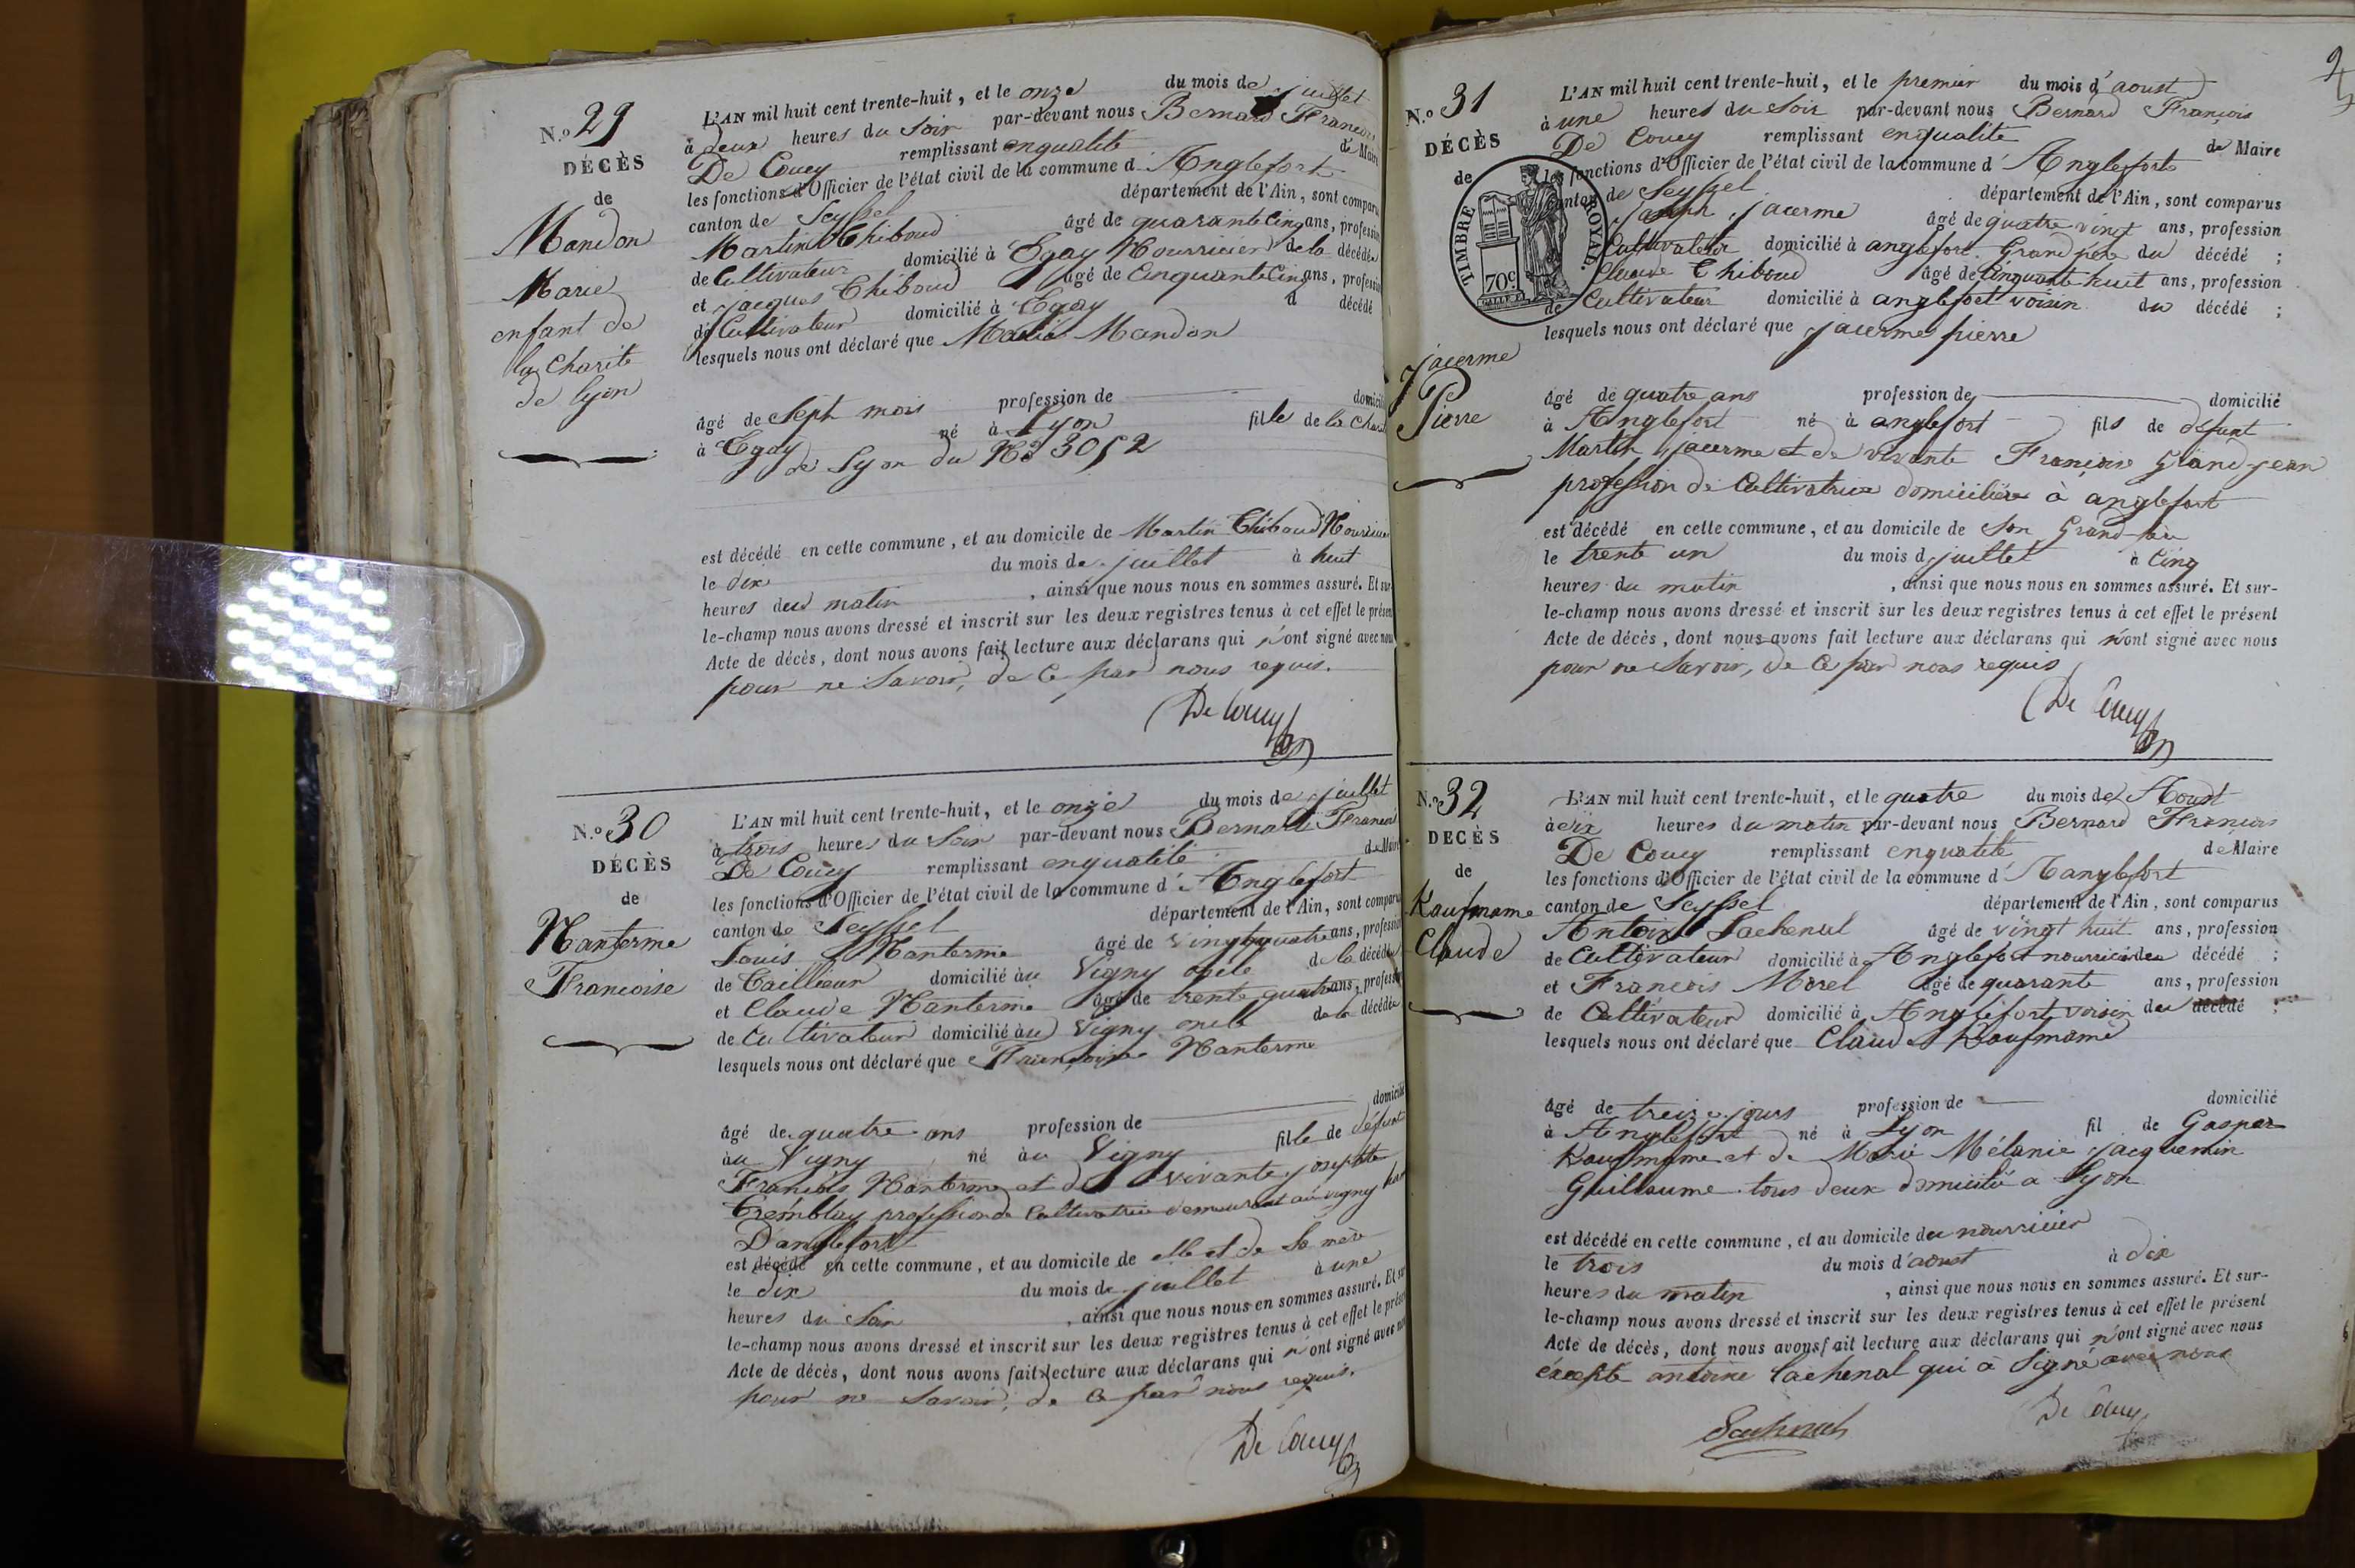 N.º 29
DÉCÈS
de
Mandon
Marie
enfant de
la Charité
de lyon
L'AN mil huit cent trente-huit, et le onze du mois de juillet
à deux heures du Soir par-devant nous Bernard François
De Coucy remplissant enqualité de Maire
les fonctions d'Officier de l'état civil de la commune d'Anglefort
canton de Seyssel département de l'Ain, sont comparu
Martin Thiboud âgé de quarante Cinq ans, profession
de Cultivateur domicilié à Egay Nourricier de la décédée
et jacques Thiboud âgé de Cinquante Cinq ans, profession
de Cultivateur domicilié à Egay d décédé
lesquels nous ont déclaré que Marie Mandon
âgé de Sept mois profession de domicilié
à Egay né à Lyon fille de la Charité
de Lyon du Nº 3052
est décédé en cette commune, et au domicile de Martin Thiboud Nourricier
le dix du mois de juillet à huit
heures du matin, ainsi que nous nous en sommes assuré. Et sur-
le-champ nous avons dressé et inscrit sur les deux registres tenus à cet effet le présent
Acte de décès, dont nous avons fait lecture aux déclarans qui n'ont signé avec nous
pour ne Savoir, de Ce par nous requis.
De Coucy
N.º 30
DÉCÈS
de
Nanterme
Françoise
L'AN mil huit cent trente-huit, et le onze du mois de juillet
à trois heures du Soir par-devant nous Bernard François
De Coucy remplissant enqualité de Maire
les fonctions d'Officier de l'état civil de la commune d'Anglefort
canton de Seyssel département de l'Ain, sont comparu
Louis Nanterme âgé de vingt quatre ans, profession
de Taillieur domicilié au Vigny de la décédée
et Claude Nanterme âgé de trente quatre ans, profession
de Cultivateur domicilié au Vigny oncle de la décédée
lesquels nous ont déclaré que Françoise Nanterme
âgé de quatre ans profession de domicilié
au Vigny né au Vigny fille de défunt
François Nanterme et de vivante josephte
Tremblay profession de Cultivatrice demeurant au vigny
D'anglefort
est décédé en cette commune, et au domicile de elle et de Sa mère
le dix du mois de juillet à une
heures du Soir, ainsi que nous nous en sommes assuré. Et sur
le-champ nous avons dressé et inscrit sur les deux registres tenus à cet effet le présent
Acte de décès, dont nous avons fait lecture aux déclarans qui n'ont signé avec nous
pour ne Savoir, de Ce par nous requis.
De Coucy
N.º 31
DÉCÈS
de
TIMBRE ROYAL.
70 c.
jacerme
Pierre
L'AN mil huit cent trente-huit, et le premier du mois d'aoust
à une heures du Soir par-devant nous Bernard François
De Coucy remplissant enqualité de Maire
les fonctions d'Officier de l'état civil de la commune d'Anglefort
canton de Seyssel département de l'Ain, sont comparus
joseph jacerme âgé de quatre vingt ans, profession
Cultivateur domicilié à anglefort Grand père du décédé ;
Claude Thiboud âgé de Cinquante huit ans, profession
de Cultivateur domicilié à anglefort voisin du décédé ;
lesquels nous ont déclaré que jacerme pierre
âgé de quatre ans profession de domicilié
à Anglefort né à anglefort fils de défunt
Martin jacerme et de vivante Françoise Grand-jean
profession de Cultivatrice domiciliée à anglefort
est décédé en cette commune, et au domicile de Son Grand-père
le trente un du mois de juillet à Cinq
heures du matin, ainsi que nous nous en sommes assuré. Et sur-
le-champ nous avons dressé et inscrit sur les deux registres tenus à cet effet le présent
Acte de décès, dont nous avons fait lecture aux déclarans qui n'ont signé avec nous
pour ne Savoir, de Ce par nous requis
De Coucy
N.º 32
DÉCÈS
de
Kaufmame
Claude
L'AN mil huit cent trente-huit, et le quatre du mois de Aoust
à dix heures du matin par-devant nous Bernard François
De Coucy remplissant enqualité de Maire
les fonctions d'Officier de l'état civil de la commune d'Anglefort
canton de Seyssel département de l'Ain, sont comparus
Antoine Lachenal âgé de vingt huit ans, profession
de Cultivateur domicilié à Anglefort nourricier du décédé ;
et François Morel âgé de quarante ans, profession
de Cultivateur domicilié à Anglefort voisin du décédé ;
lesquels nous ont déclaré que Claude Kaufmame
âgé de treize jours profession de domicilié
à Anglefort né à Lyon fil de Gaspar
Kaufmame et de Marie Mélanie jacquemin
Guillaume tous deux domicilié a Lyon
est décédé en cette commune, et au domicile du nourricier
le trois du mois d'aoust à dix
heures du matin, ainsi que nous nous en sommes assuré. Et sur-
le-champ nous avons dressé et inscrit sur les deux registres tenus à cet effet le présent
Acte de décès, dont nous avons fait lecture aux déclarans qui n'ont signé avec nous
éxcepté antoine lachenal qui a Signé avec nous
Lachenal
De Coucy